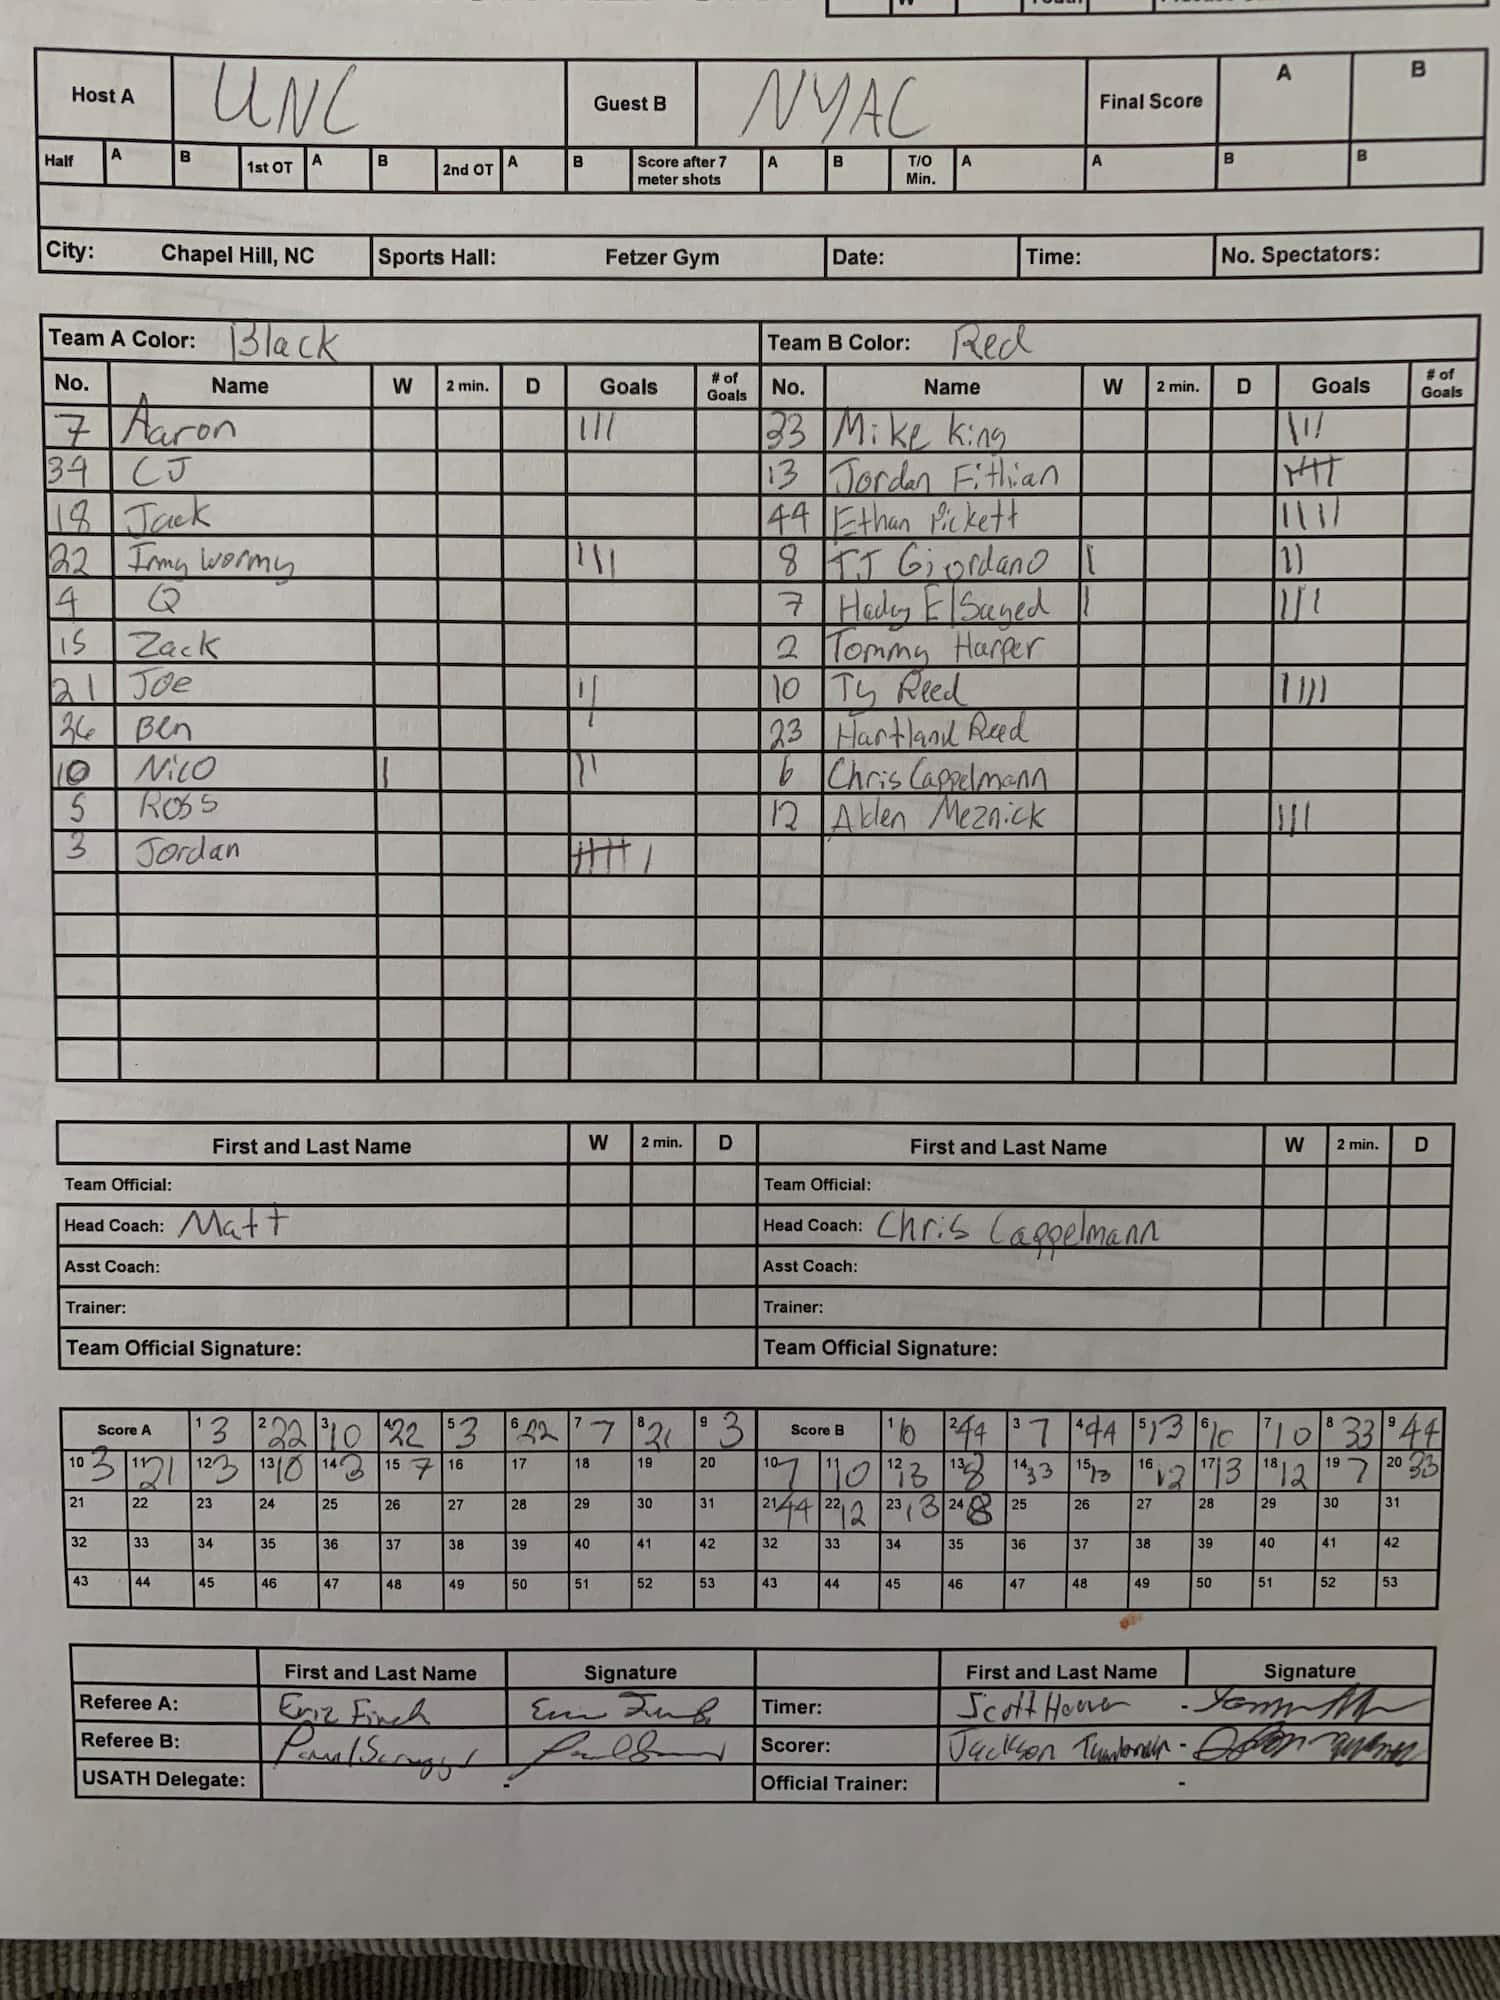 Host A UNC Guest B NYAC Final Score A B
Half A B 1st OT A B 2nd OT A B Score after 7 meter shots A B T/O Min. A A B B
City: Chapel Hill, NC Sports Hall: Fetzer Gym Date: Time: No. Spectators:
Team A Color: Black Team B Color: Red
No. Name W 2 min. D Goals # of Goals No. Name W 2 min. D Goals # of Goals
7 Aaron 33 Mike King
34 CJ 13 Jordan Fithian
18 Jack 44 Ethan Pickett
22 Irmy Wormy 8 TJ Giordano
4 Q 7 Hady ElSayed
15 Zack 2 Tommy Harper
21 Joe 10 Ty Reed
26 Ben 23 Hartland Reed
10 Nico 6 Chris Cappelmann
5 Ross 12 Alden Meznick
3 Jordan
First and Last Name W 2 min. D First and Last Name W 2 min. D
Team Official: Team Official:
Head Coach: Matt Head Coach: Chris Cappelmann
Asst Coach: Asst Coach:
Trainer: Trainer:
Team Official Signature: Team Official Signature:
Score A 1 3 2 22 3 10 4 22 5 3 6 22 7 7 8 21 9 3 Score B 1 10 2 44 3 7 4 44 5 13 6 10 7 10 8 33 9 44
10 3 11 21 12 3 13 10 14 3 15 7 16 17 18 19 20 10 7 11 10 12 13 13 8 14 33 15 13 16 12 17 13 18 12 19 7 20 33
21 22 23 24 25 26 27 28 29 30 31 21 44 22 12 23 13 24 8 25 26 27 28 29 30 31
32 33 34 35 36 37 38 39 40 41 42 32 33 34 35 36 37 38 39 40 41 42
43 44 45 46 47 48 49 50 51 52 53 43 44 45 46 47 48 49 50 51 52 53
First and Last Name Signature First and Last Name Signature
Referee A: Eric Finch Timer: Scott Hoover
Referee B: Paul Scruggs Scorer: Jackson
USATH Delegate: - Official Trainer: -